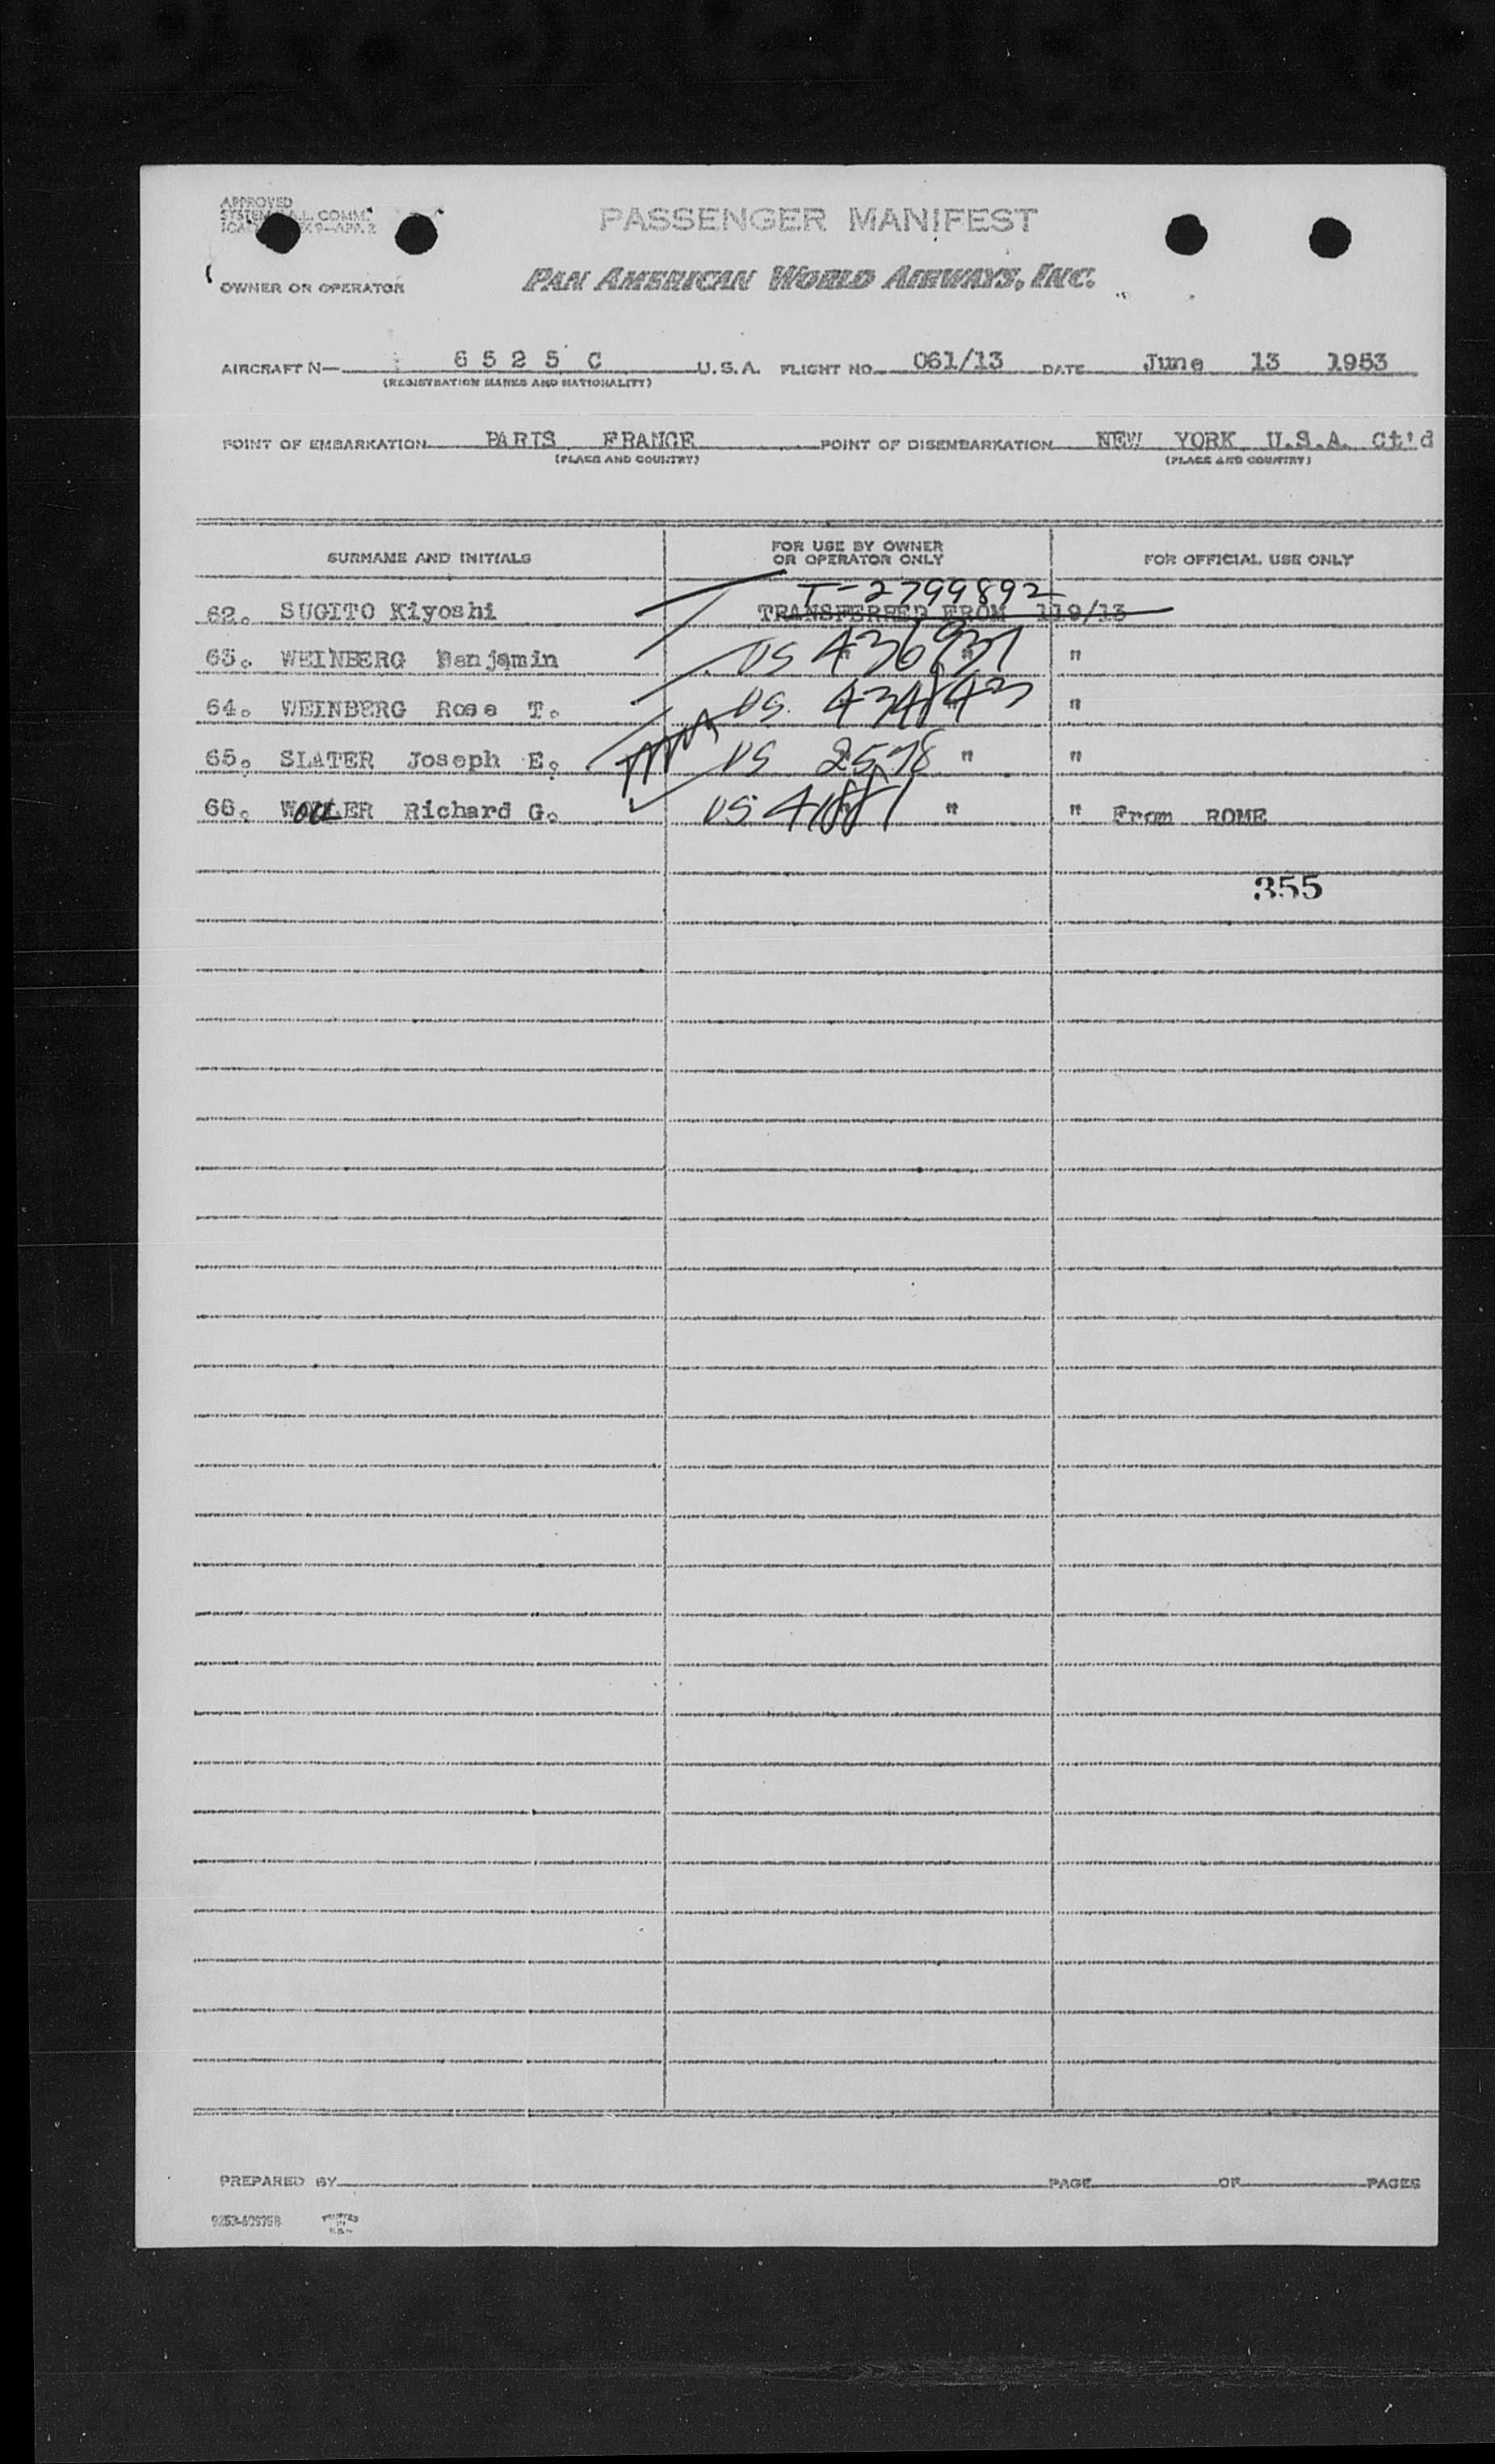 APPROVED
PASSENGER MANIFEST
OWNER OR OPERATOR PAN AMERICAN WORLD AIRWAYS, INC.
AIRCRAFT N— 6 5 2 5 C U.S.A. FLIGHT NO. 061/13 DATE June 13 1953
(REGISTRATION MARKS AND NATIONALITY)
POINT OF EMBARKATION PARIS FRANCE POINT OF DISEMBARKATION NEW YORK U.S.A. Ct'd
(PLACE AND COUNTRY) (PLACE AND COUNTRY)
SURNAME AND INITIALS FOR USE BY OWNER OR OPERATOR ONLY FOR OFFICIAL USE ONLY
T-2799892
62. SUGITO Kiyoshi TRANSFERRED FROM 119/13
63. WEINBERG Benjamin US 436931 "
64. WEINBERG Rose T. US "
65. SLATER Joseph E. US 2578 " "
66. WOLLER Richard G. US " " From ROME
355
PREPARED BY PAGE OF PAGES
PRINTED IN U.S.A.